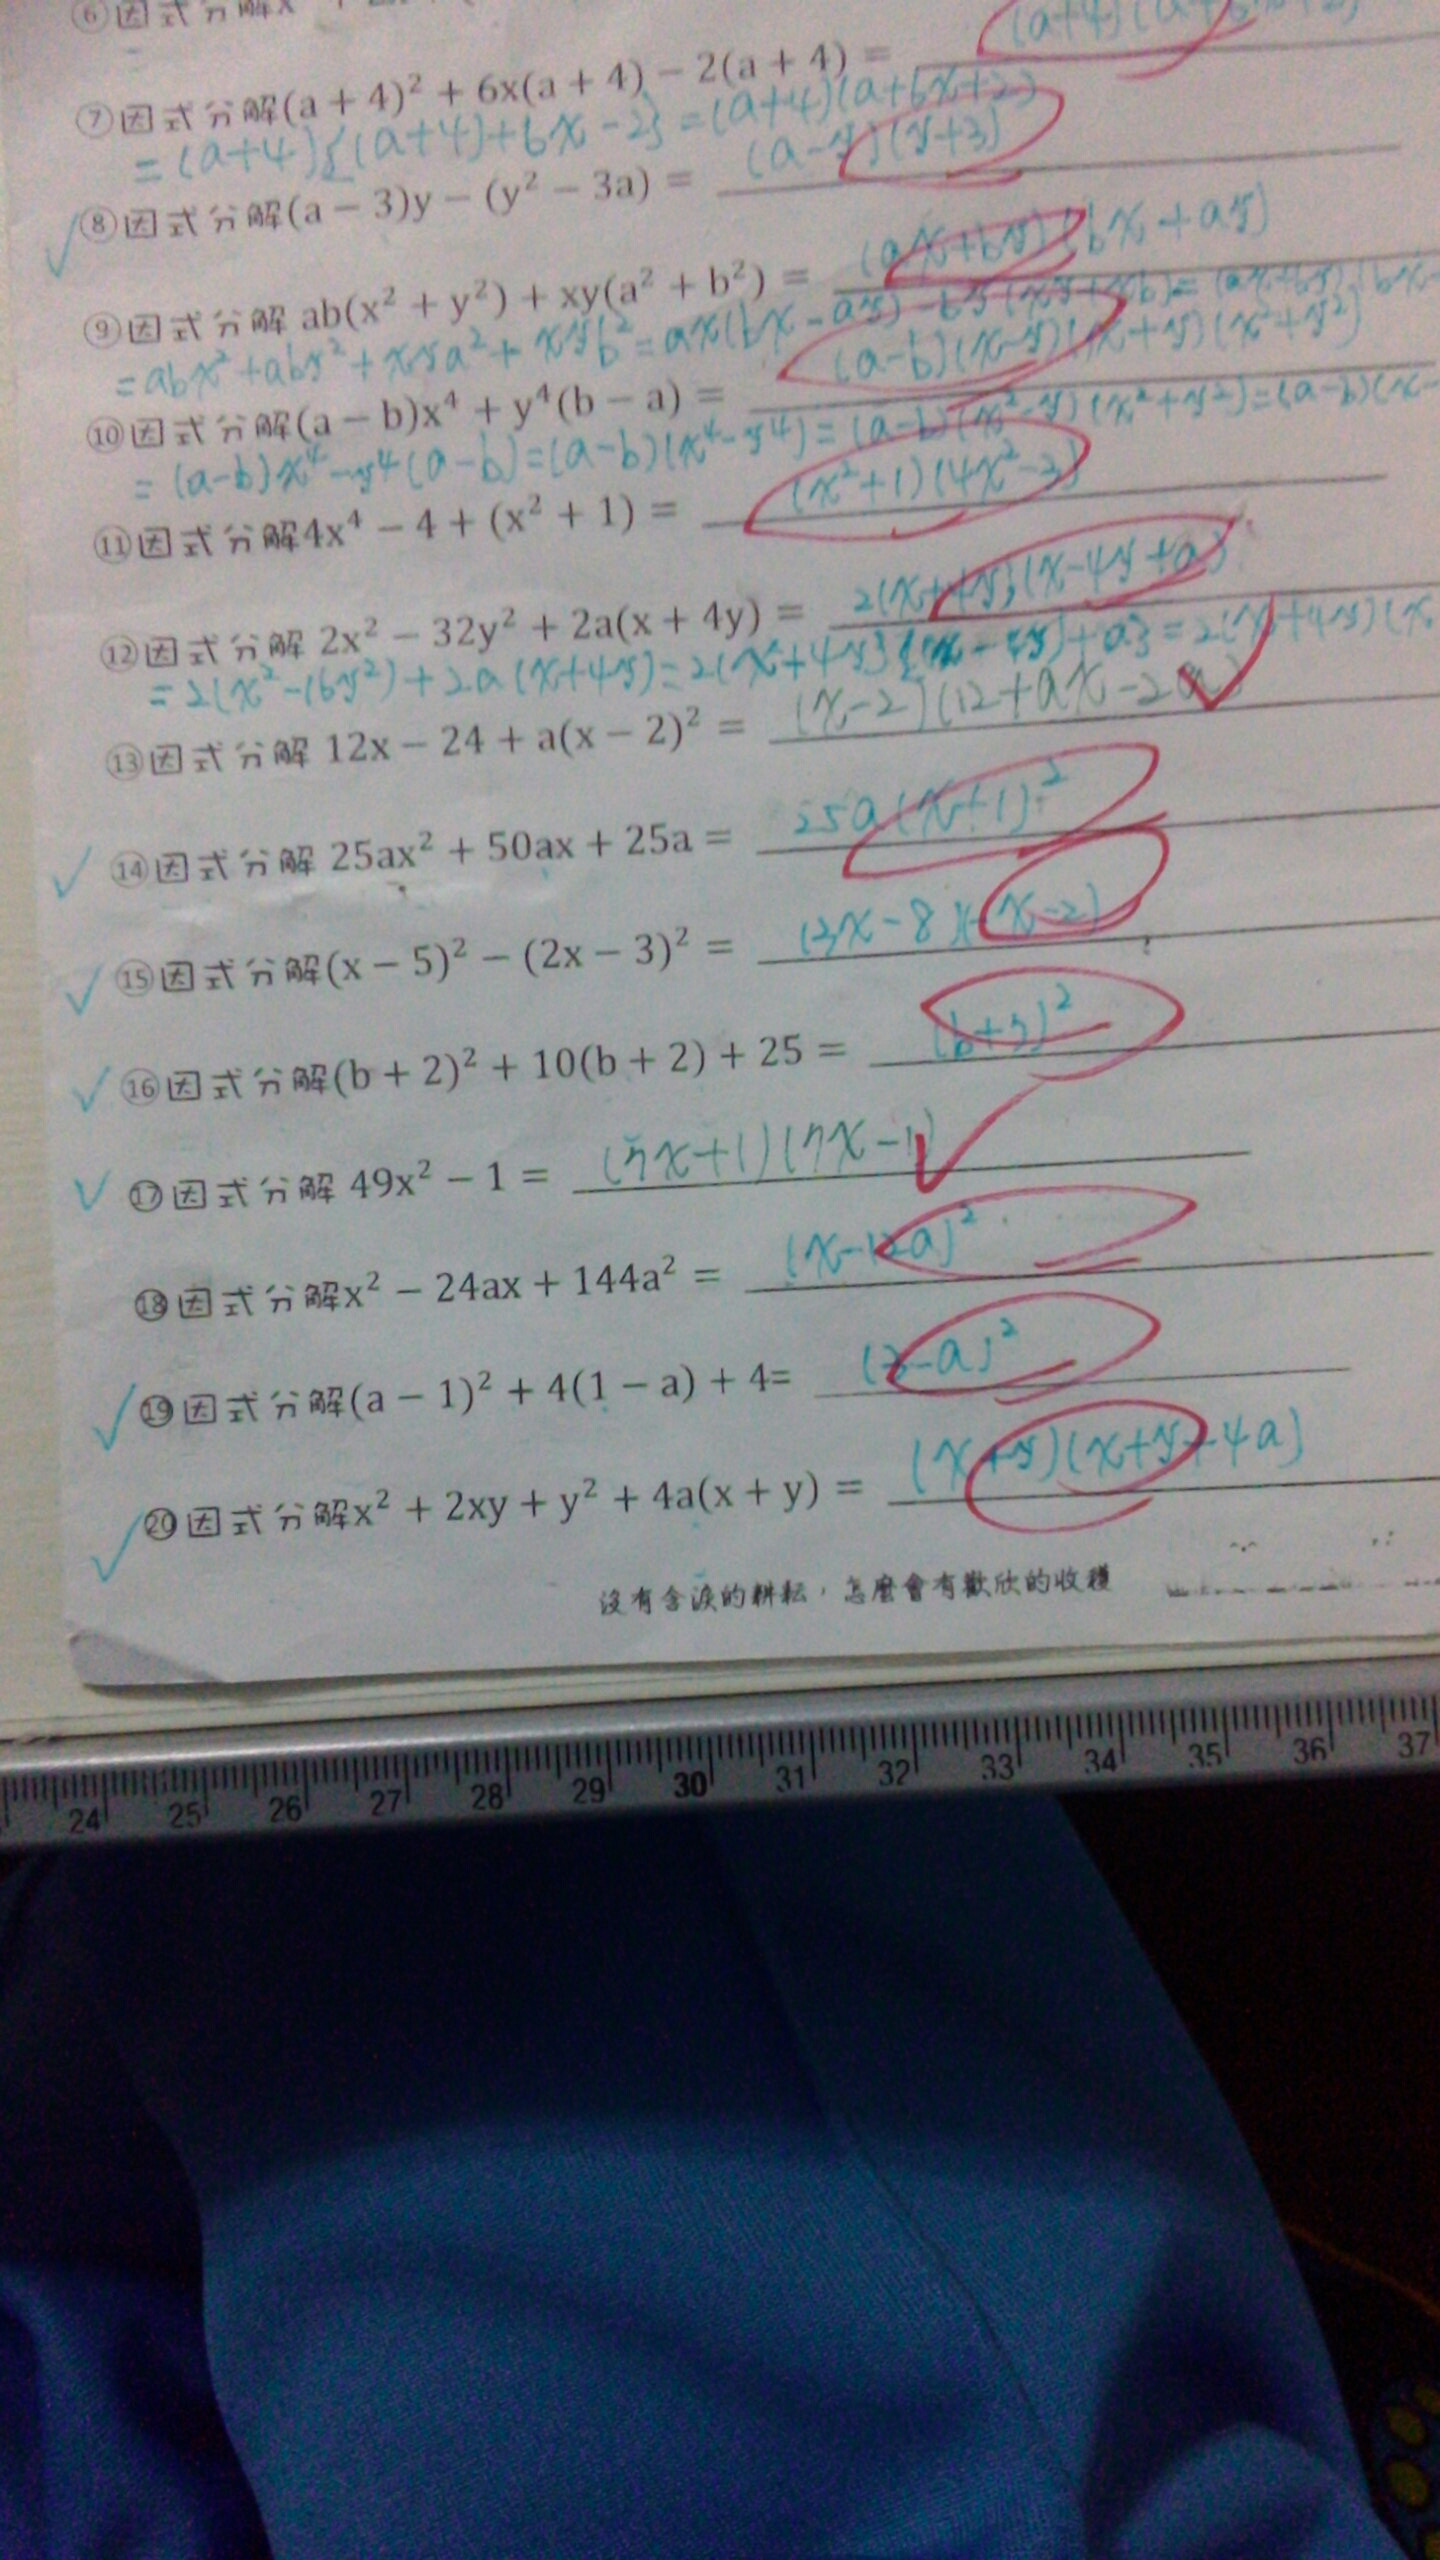 ⑥因式分解x
⑦因式分解(a + 4)² + 6x(a + 4) − 2(a + 4) =
= (a+4){(a+4)+6x-2} = (a+4)(a+6x+2)
⑧因式分解(a − 3)y − (y² − 3a) = (a-y)(y+3)
⑨因式分解 ab(x² + y²) + xy(a² + b²) = (ax+by)(bx+ay)
= abx²+aby²+xya²+xyb² = ax(bx-ay)
⑩因式分解(a − b)x⁴ + y⁴(b − a) = (a-b)(x-y)(x+y)(x²+y²)
= (a-b)x⁴-y⁴(a-b) = (a-b)(x⁴-y⁴) = (a-b)(x²-y)(x²+y²) = (a-b)(x-
⑪因式分解4x⁴ − 4 + (x² + 1) = (x²+1)(4x²-3)
⑫因式分解 2x² − 32y² + 2a(x + 4y) = 2(x+4y)(x-4y+a)
= 2(x²-16y²)+2a(x+4y) = 2(x+4y){(x-4y)+a} = 2(x+4y)(x
⑬因式分解 12x − 24 + a(x − 2)² = (x-2)(12+ax-2a)
⑭因式分解 25ax² + 50ax + 25a = 25a(x+1)²
⑮因式分解(x − 5)² − (2x − 3)² = (3x-8)(-x-2)
⑯因式分解(b + 2)² + 10(b + 2) + 25 = (b+7)²
⑰因式分解 49x² − 1 = (7x+1)(7x-1)
⑱因式分解x² − 24ax + 144a² = (x-12a)²
⑲因式分解(a − 1)² + 4(1 − a) + 4= (3-a)²
⑳因式分解x² + 2xy + y² + 4a(x + y) = (x+y)(x+y+4a)
沒有含淚的耕耘，怎麼會有歡欣的收穫
24 25 26 27 28 29 30 31 32 33 34 35 36 37